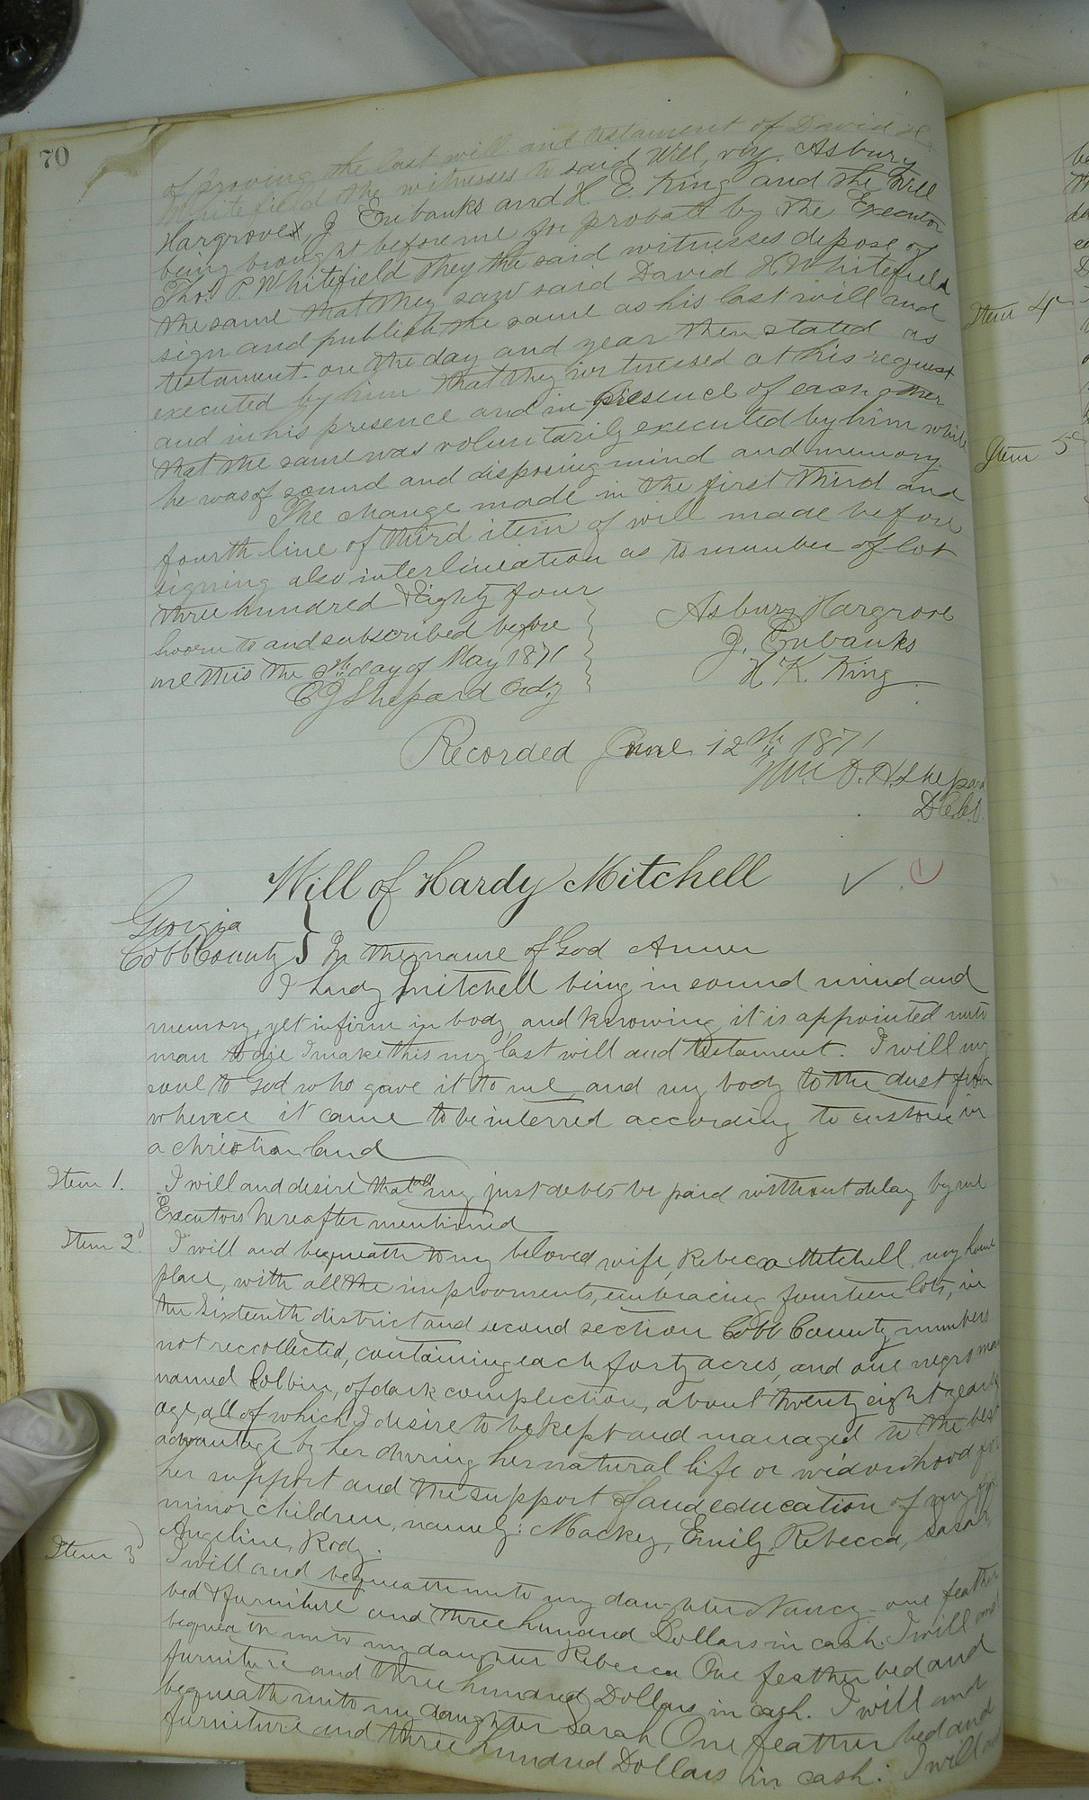 70
of proving the last will and testament of David H.
Whitefield the witnesses to said Will, viz. Asbury
Hargrove, J. Eubanks and H. E. King and the will
being brought before me for probate by the Executor
Thos. P. Whitefield They the said witnesses depose of
the same that they saw said David H Whitefield
sign and publish the same as his last will and
testament. on the day and year then stated as
executed by him that they witnessed at his request
and in his presence and in presence of each other
that the same was voluntarily executed by him while
he was of sound and disposing mind and memory
The change made in the first third and
fourth line of third item of will made before
signing also interlineation as to number of lot
three hundred & Eighty four
Sworn to and subscribed before
me this the day of May 1871
C J Shepard Ordy
Asbury Hargrove
J. Eubanks
H. K. King
Recorded June 12th 1871
Wm. D. H. Shepard
D.C.C.O.
Will of Hardy Mitchell
1
Georgia
Cobb County } In the name of God Amen
I Hardy Mitchell being in sound mind and
memory, yet infirm in body, and knowing it is appointed unto
man to die I make this my last will and testament. I will my
soul to God who gave it to me, and my body to the dust from
whence it came to be interred according to custom in
a christian land
Item 1. I will and desire that all my just debts be paid without delay by me
Executors hereafter mentioned
Item 2d I will and bequeath to my beloved wife, Rebecca Mitchell, my home
place, with all the improvements, embracing fourteen lots, in
the Sixteenth district and second section Cobb County numbers
not reccollected, containing each forty acres, and one negro man
named Robbin, of dark complection, about twenty eight years
age, all of which I desire to be kept and managed to the best
advantage by her during her natural life or widowhood for
her support and the support of and education of my
minor children, namely: Mackey, Emily, Rebecca, Sarah,
Angeline, Rody.
Item 3d I will and bequeath unto my daughter Nancy one feather
bed & furniture and three hundred Dollars in cash. I will and
bequeath unto my daughter Rebecca One feather bed and
furniture and three hundred Dollars in cash. I will and
bequeath unto my daughter Sarah One feather bed and
furniture and three hundred Dollars in cash. I will
Item 4
Item 5